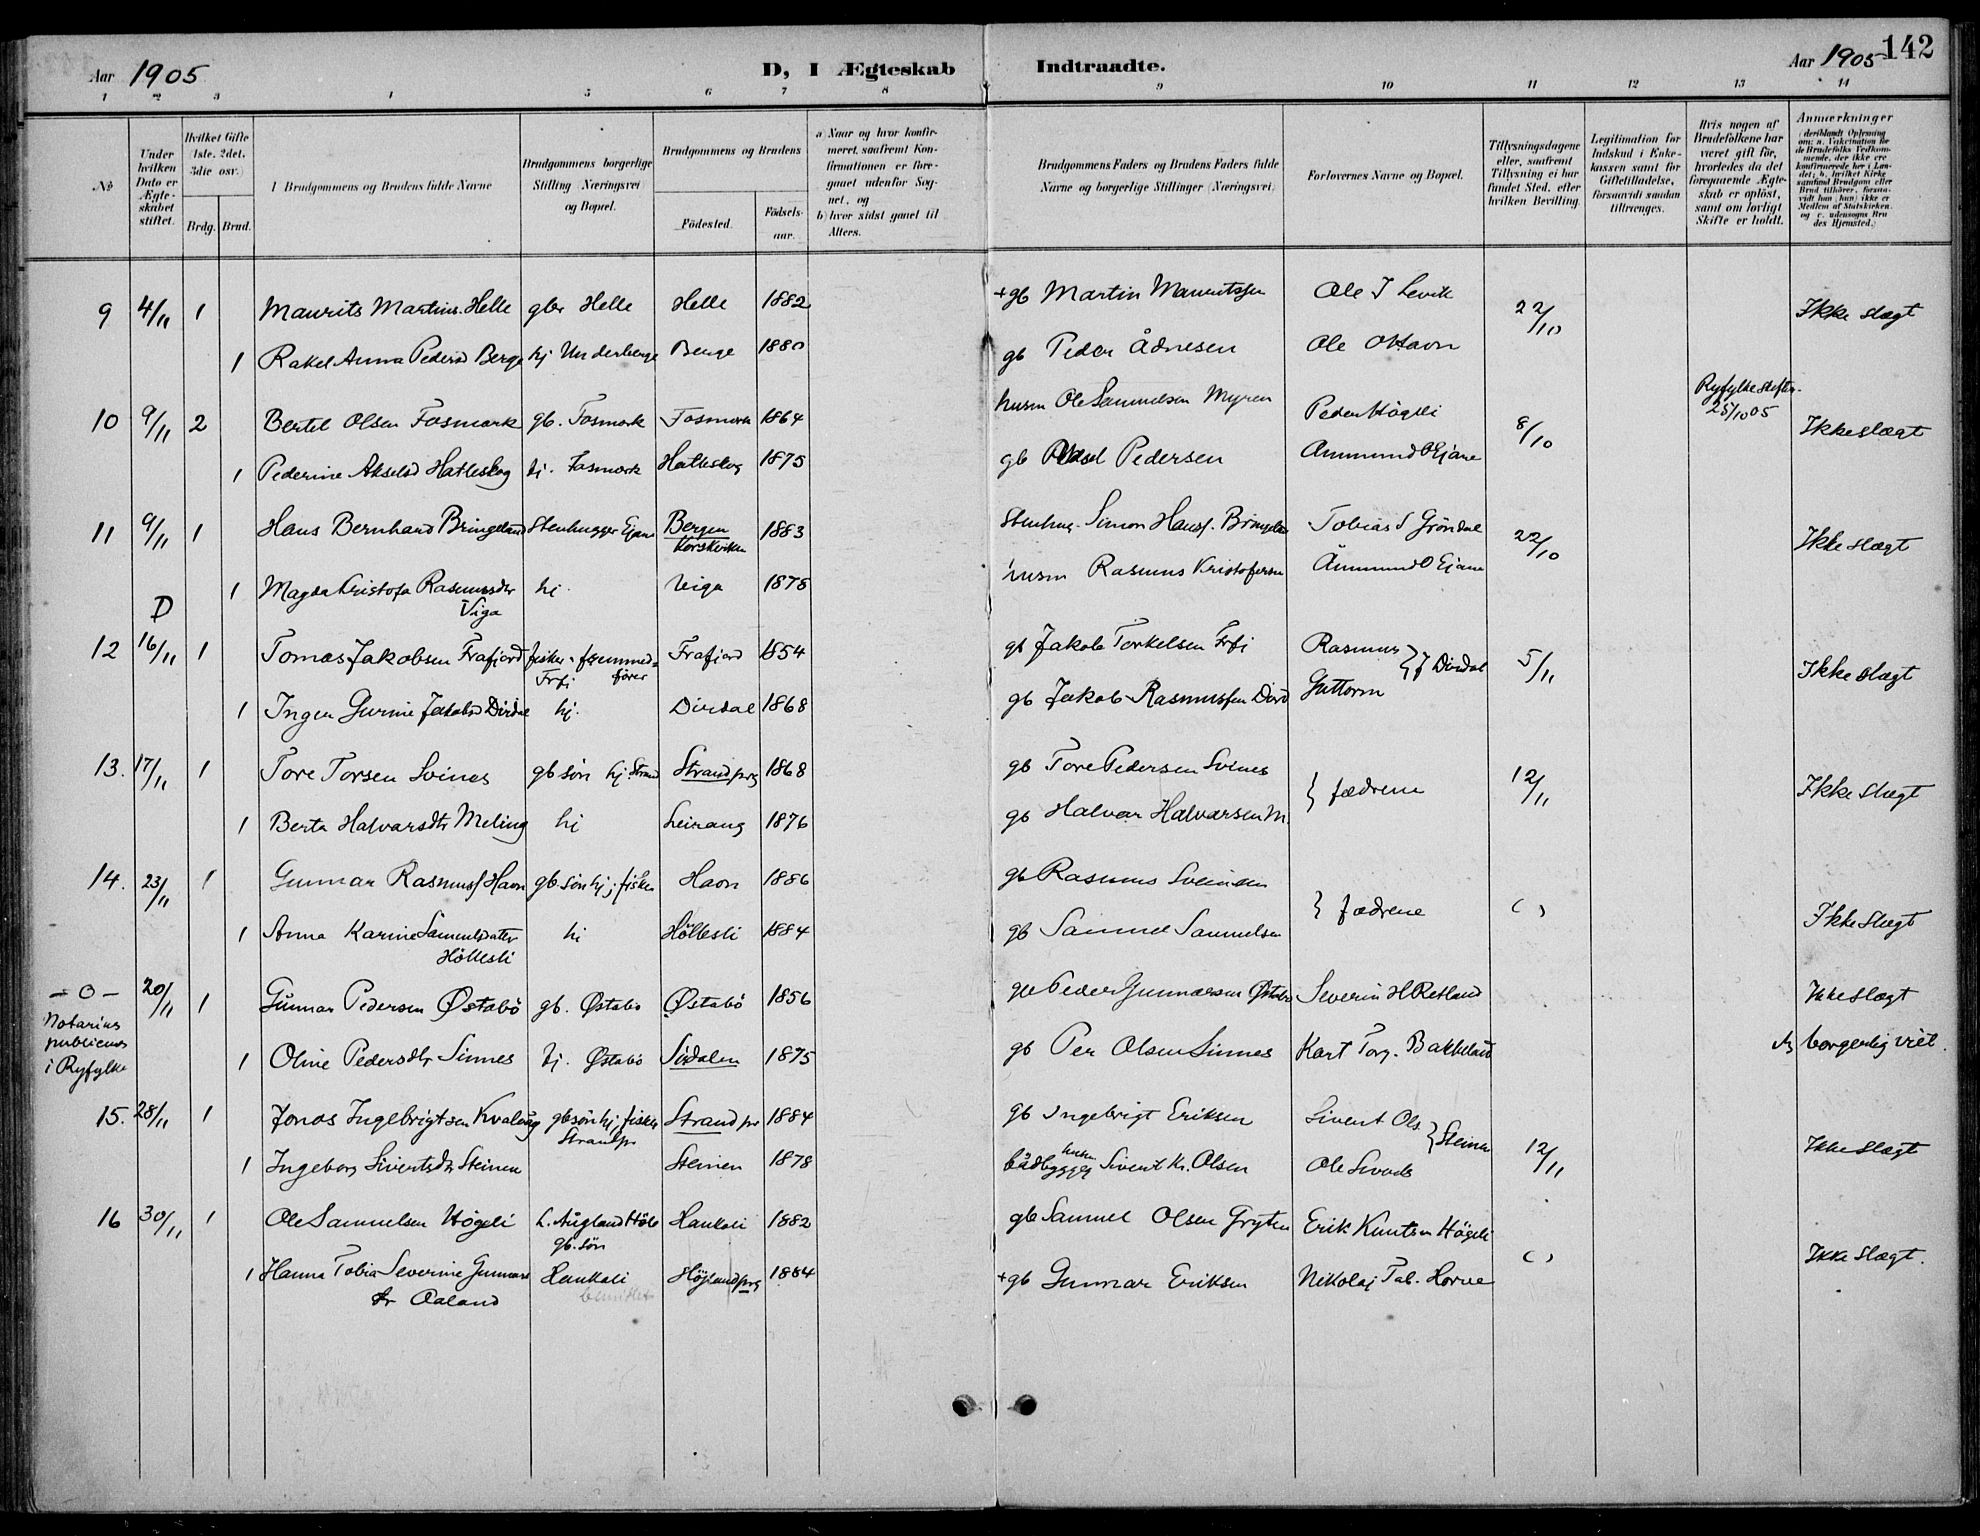 Aar 1905 D, I Ægteskab Indtraadte. Aar 1905 142
1 2 3 4 5 6 7 8 9 10 11 12 13 14
№
Under hvilken Dato er Ægteskabet stiftet.
Hvilket Gifte (1ste, 2det, 3die osv.)
Brdg. Brud.
Brudgommens og Brudens fulde Navne
Brudgommens borgerlige Stilling (Næringsvei) og Bopæl.
Brudgommens og Brudens
Fødested.
Fødsels-aar.
a) Naar og hvor konfirmeret, saafremt Konfirmationen er foregaaet udenfor Sognet, og
b) hvor sidst gaaet til Alters.
Brudgommens Faders og Brudens Faders fulde Navne og borgerlige Stillinger (Næringsvei)
Forlovernes Navne og Bopæl.
Tillysningsdagene eller, saafremt Tillysning ei har fundet Sted, efter hvilken Bevilling.
Legitimation for Indskud i Enkekassen samt for Giftetilladelse, forsaavidt saadan tiltrænges.
Hvis nogen af Brudefolkene har været gift før, hvorledes da det foregaaende Ægteskab er opløst, samt om lovligt Skifte er holdt.
Anmærkninger
9 4/11 1 Maurits Martins. Helle gbr Helle Helle 1882 +gb Martin Mauritssen Ole T Levik 22/10 Ikke slægt
1 Rakel Anna Pedersd Berge hj Underberge Berge 1880 gb Peder Ådnesen Ole O Havn
10 9/11 2 Bertel Olsen Fosmark gb. Fosmark Fosmark 1864 husm Ole Samuelsen Myren Peder Högeli 8/10 Ryfylke skifter. 25/10 05 Ikke slægt
1 Pederine Akselsd Hatleskog hj. Fosmork Hatleskog 1875 gb Aksel Pedersen Ammund O Ejane
11 9/11 1 Hans Bernhard Bringeland Stenhugger Ejane Bergen Korskirken 1883 Stenhug. Simon Hans. Bringelan Tobias S Gröndal 22/10 Ikke slægt
1 Magda Kristofa Rasmusdtr Viga hj. Viga 1878 husm Rasmus Kristofersen Åmmund O Ejane
D
12 16/11 1 Tomas Jakobsen Frafjord fisker - fremmedfører Frfj Frafjord 1854 gb Jakob Torkelsen Frfj Rasmus } J Dirdal 5/11 Ikke slægt
1 Inger Gurine Jakobsd Dirdal hj. Dirdal 1868 gb Jakob Rasmussen Dird Guttorm
13. 17/11 1 Tore Torsen Svines gb søn hj Strand Strand prg 1868 gb Tore Pedersen Svines } fædrene 12/11 Ikke slægt
1 Berta Halvarsdtr Meling hj Leirang 1876 gb Halvar Halvarsen M.
14. 23/11 1 Gunnar Rasmuss Havn gb. søn hj; fisker Havn 1886 gb Rasmus Sveinsen } fædrene ( ) Ikke slægt
1 Anna Karine Samuelsdatter Höllesli hj Höllesli 1884 gb Samuel Samuelsen
- 0 - 20/11 1 Gunnar Pedersen Østabö gb. Østabö Østabö 1856 gb Peder Gunnarsen Østabö Severin H Retland Ikke slægt
Notarius publicus i Ryfylke
1 Oline Pedersdtr Sinnes hj. Østabö Sirdalen 1875 gb Per Olsen Sinnes Kart Torg. Bakkeland borgerlig viet.
15. 28/11 1 Jonas Ingebrigtsen Kvalvåg gb søn hj; fisker Strand pr Strand pr 1884 gb Ingebrigt Eriksen Sivert Ols } Steinen 12/11 Ikke slægt
1 Ingeborg Sivertsdtr Steinen Steinen 1878 husm bådbygger Sivert Kr. Olsen Ole Sivards
16 30/11 1 Ole Samuelsen Högeli L. Augland Höle gb. søn Haukali 1882 gb Samuel Olsen Gryten Erik Knutsen Högeli ( ) Ikke slægt.
1 Hanna Tobia Severine Gunnars dtr Aaland Haukali Höjland prg 1884 +gb Gunnar Eriksen Nikolaj Tab. Horve